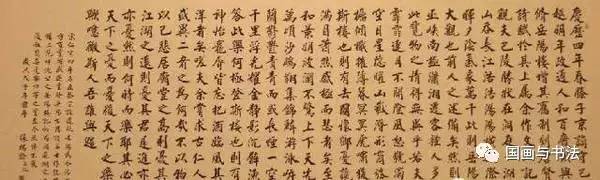 慶曆四年春滕子京謫守巴陵郡
越明年政通人和百廢具興乃重
修岳陽樓增其舊制刻唐賢今人
詩賦於其上屬余作文以記之予
觀夫巴陵勝狀在洞庭一湖銜遠
山吞長江浩浩湯湯橫無際涯朝
暉夕陰氣象萬千此則岳陽樓之
大觀也前人之述備矣然則北通
巫峽南極瀟湘遷客騷人多會於
此覽物之情得無異乎若夫霪雨
霏霏連月不開陰風怒號濁浪排
空日星隱耀山嶽潛形商旅不行
檣傾楫摧薄暮冥冥虎嘯猿啼登
斯樓也則有去國懷鄉憂讒畏譏
滿目蕭然感極而悲者矣至若春
和景明波瀾不驚上下天光一碧
萬頃沙鷗翔集錦鱗游泳岸芷汀
蘭郁郁青青而或長煙一空皓月
千里浮光耀金靜影沉璧漁歌互
答此樂何極登斯樓也則有心曠
神怡寵辱皆忘把酒臨風其喜洋
洋者矣嗟夫余嘗求古仁人之心
或異二者之為何哉不以物喜不
以己悲居廟堂之高則憂其民處
江湖之遠則憂其君是進亦憂退
亦憂然則何時而樂耶其必曰先
天下之憂而憂後天下之樂而樂
歟噫微斯人吾誰與歸
国画与书法